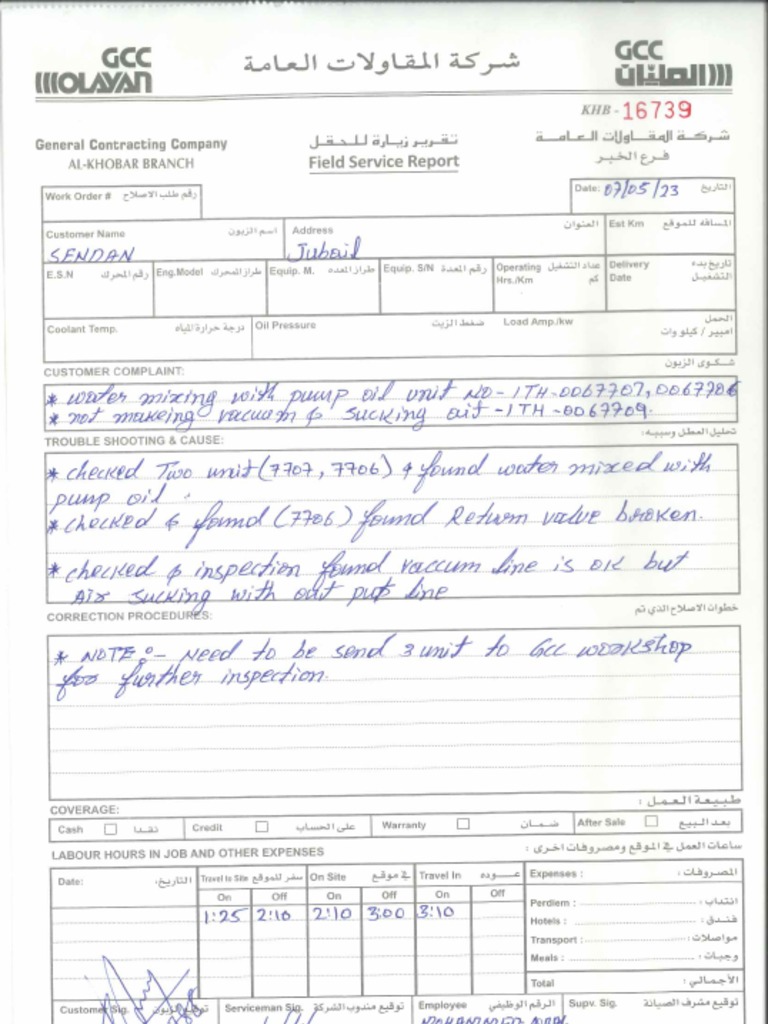 GCC
OLAYAN
شركة المقاولات العامة
GCC
العليان
KHB - 16739
General Contracting Company
AL-KHOBAR BRANCH
تقرير زيارة للحقل
Field Service Report
شركة المقاولات العامة
فرع الخبر
Work Order # رقم طلب الاصلاح
Date: 07/05/23 التاريخ
Customer Name اسم الزبون
SENDAN
Address العنوان
Jubail
Est Km المسافه للموقع
E.S.N رقم المحرك
Eng.Model طراز المحرك
Equip. M. طراز المعده
Equip. S/N رقم المعدة
Operating عداد التشغيل
Hrs./Km كم
Delivery تاريخ بدء
Date التشغيل
Coolant Temp. درجة حرارة المياه
Oil Pressure ضغط الزيت
Load Amp./kw الحمل
امبير / كيلو وات
CUSTOMER COMPLAINT: شكوى الزبون
* water mixing with pump oil unit NO - ITH-0067707, 0067706
* not makeing vacuum & sucking ait - ITH-0067709.
TROUBLE SHOOTING & CAUSE: تحليل العطل وسببه:
* checked Two unit (7707, 7706) & found water mixed with
pump oil.
* checked & found (7706) found Return value broken.
* checked & inspection found vaccum line is ok but
Air sucking with out put line
CORRECTION PROCEDURES: خطوات الاصلاح الذي تم
* NOTE:- Need to be send 3 unit to GCC workshop
for further inspection.
COVERAGE: طبيعة العمل :
Cash نقدا
Credit على الحساب
Warranty ضمان
After Sale بعد البيع
LABOUR HOURS IN JOB AND OTHER EXPENSES ساعات العمل في الموقع ومصروفات اخرى :
Date: التاريخ:
Travel to Site سفر للموقع
On Site في موقع
Travel In عوده
Expenses : المصروفات :
On Off On Off On Off
1:25 2:10 2:10 3:00 3:10
Perdiem : انتداب :
Hotels : فندق :
Transport : مواصلات :
Meals : وجبات :
Total الأجمالي :
Customer Sig. توقيع الزبون
Serviceman Sig. توقيع مندوب الشركة
Employee الرقم الوظيفي
Supv. Sig. توقيع مشرف الصيانة